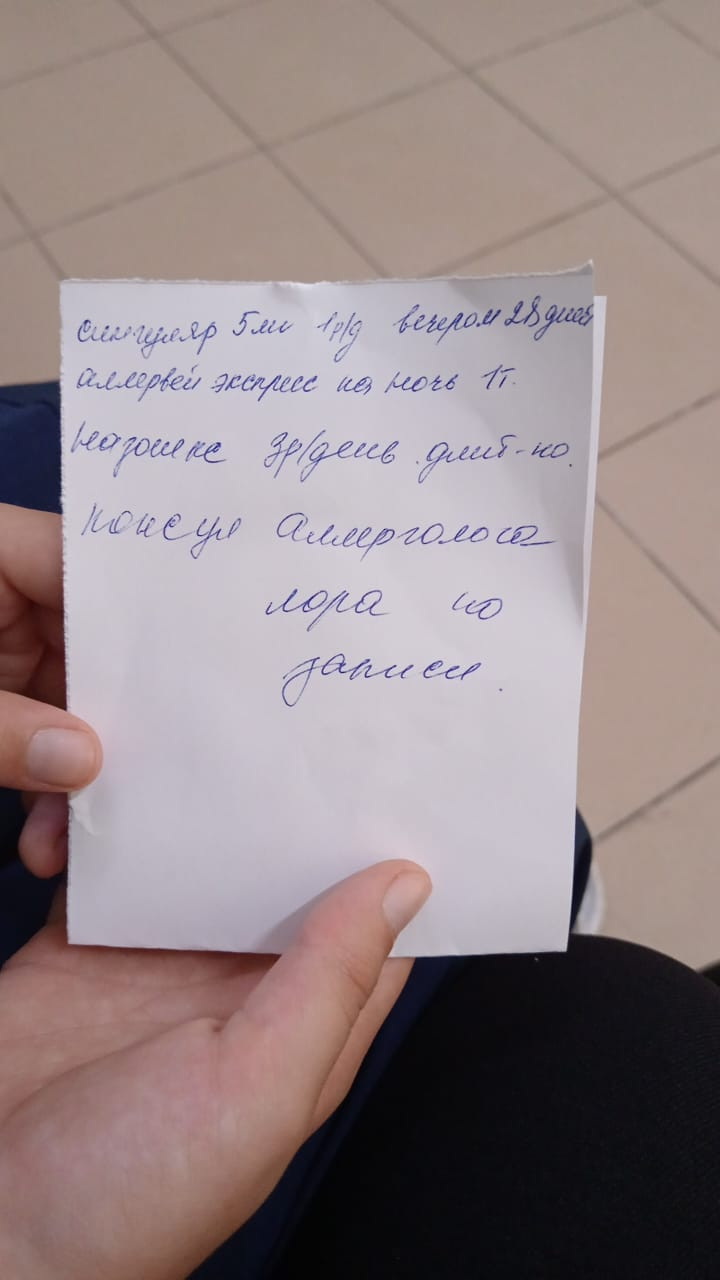 сингуляр 5мг 1р/д вечером 28 дней
аллервэй экспресс на ночь 1т.
Назонекс 3р/день длит-но.
консул аллерголога
лора по
записи.